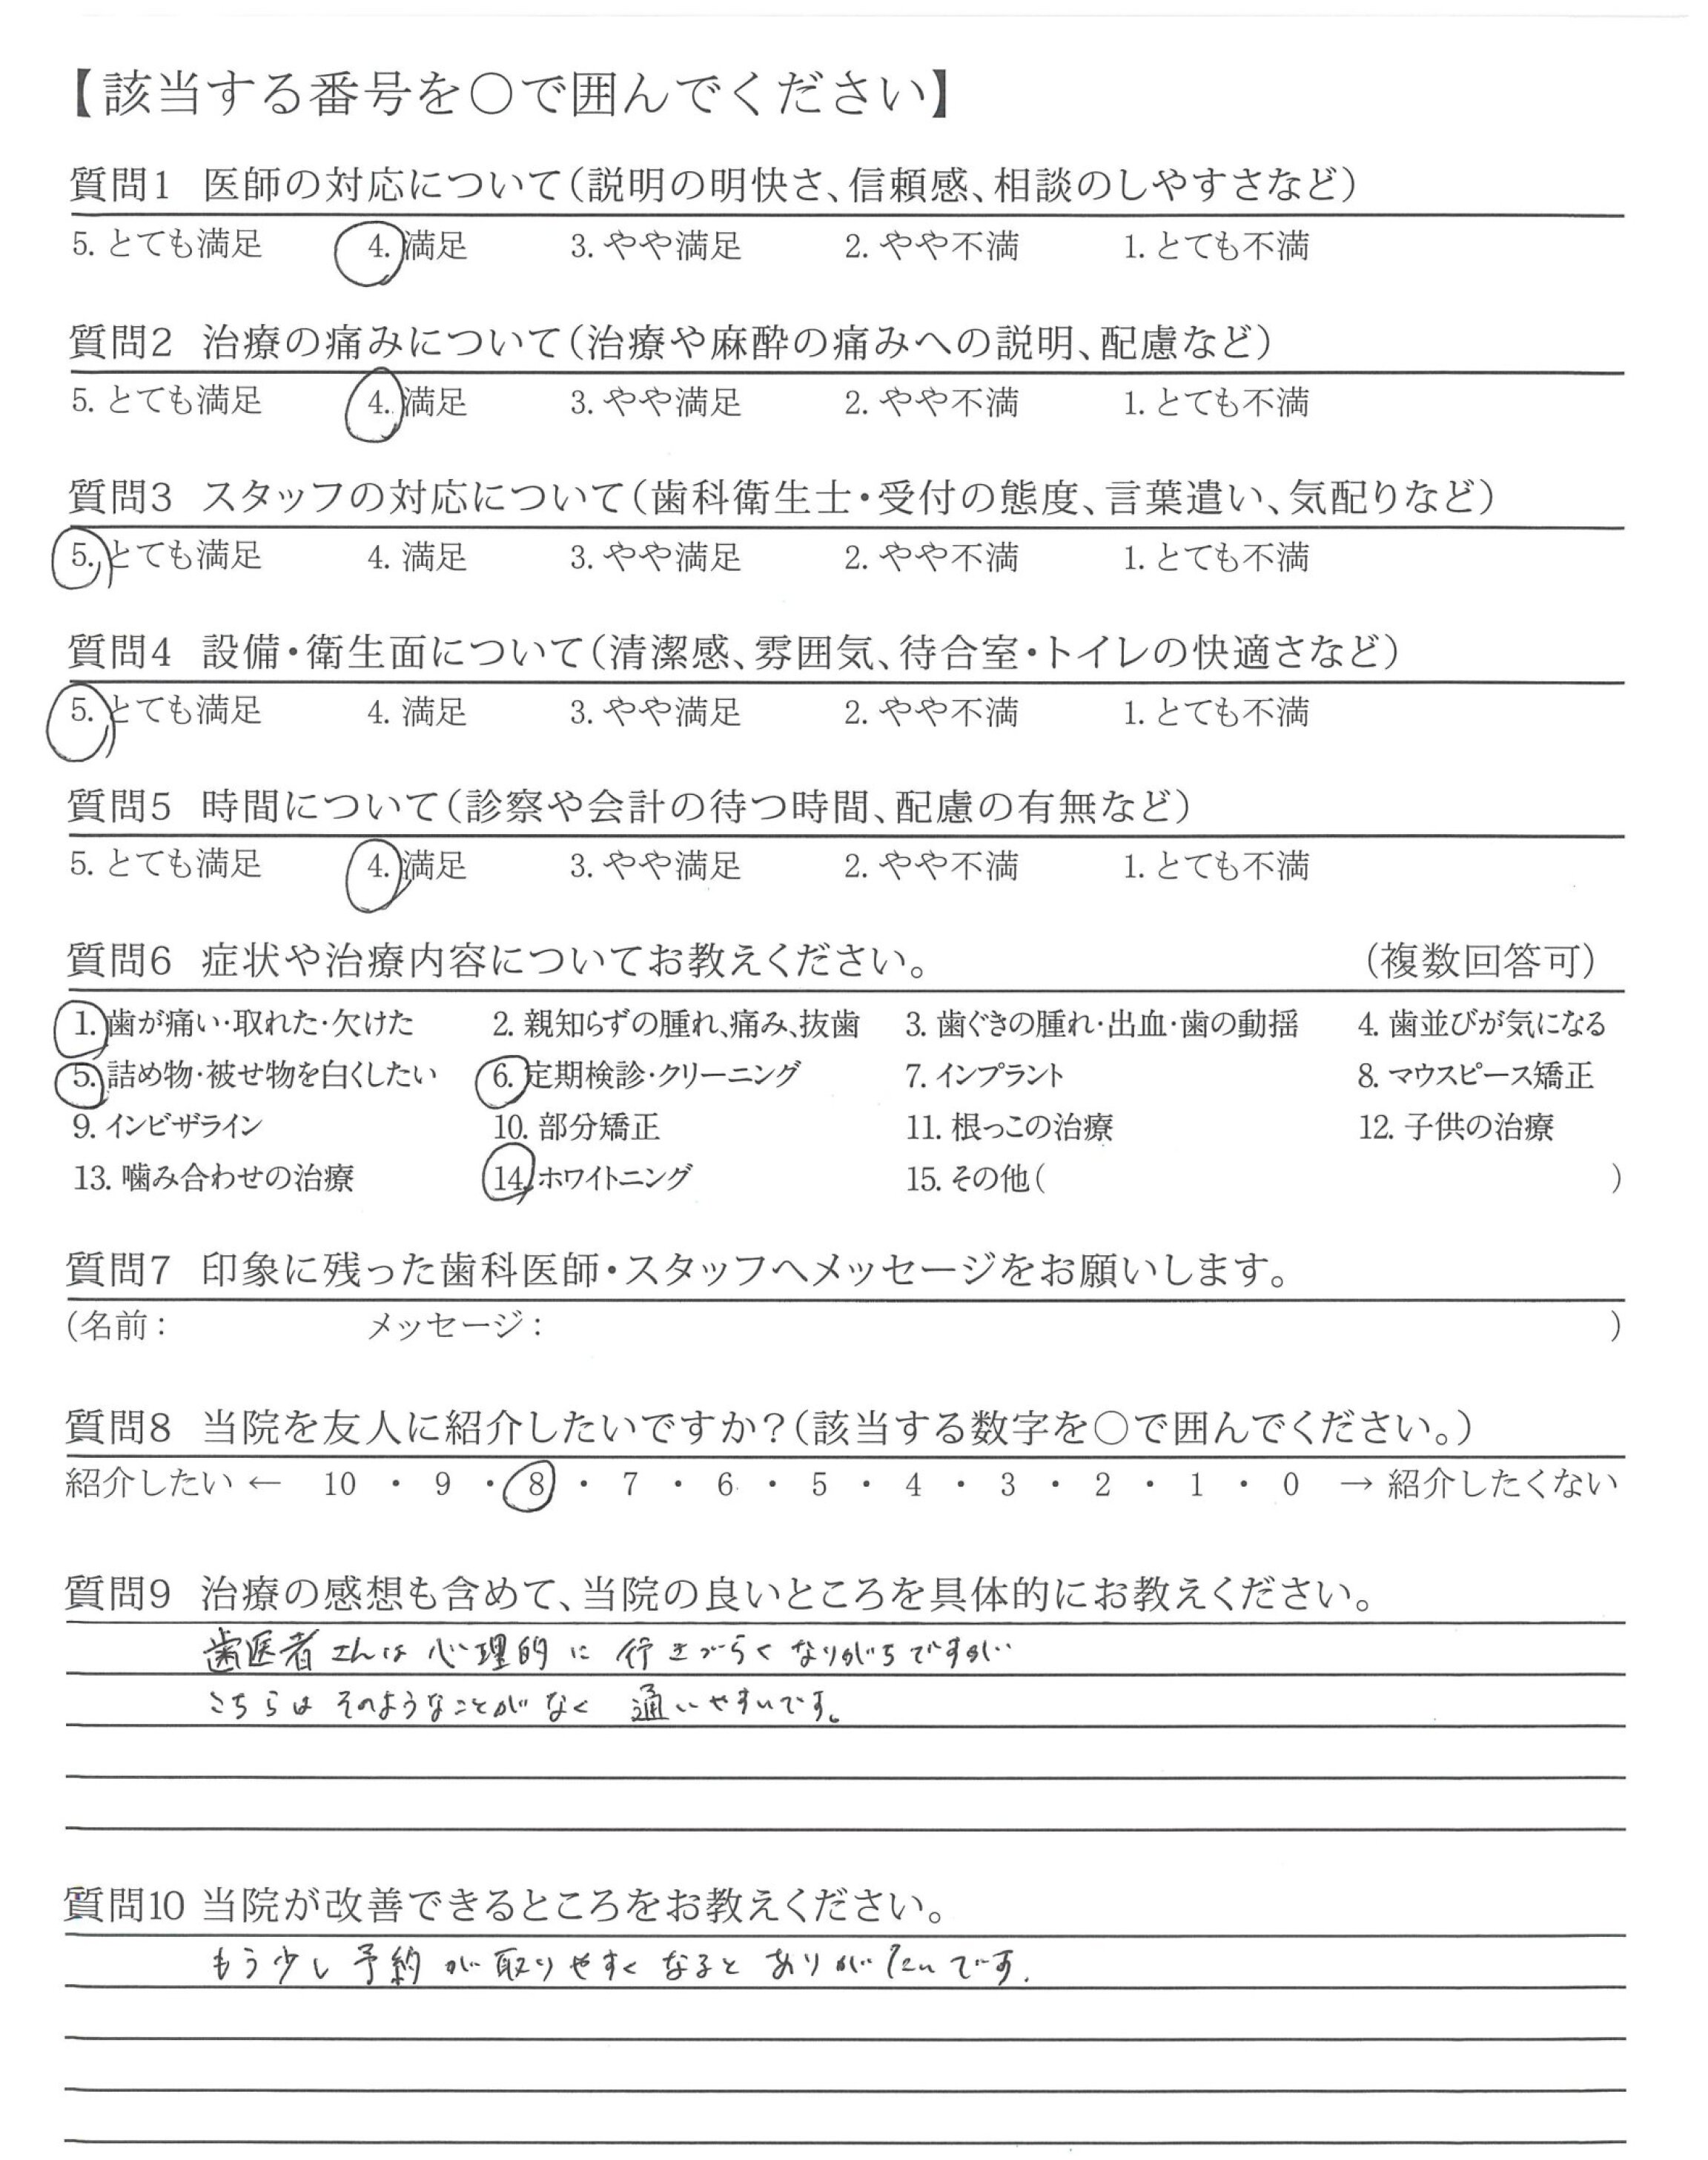 【該当する番号を○で囲んでください】
質問1 医師の対応について(説明の明快さ、信頼感、相談のしやすさなど)
5. とても満足 4. 満足 3. やや満足 2. やや不満 1. とても不満
質問2 治療の痛みについて(治療や麻酔の痛みへの説明、配慮など)
5. とても満足 4. 満足 3. やや満足 2. やや不満 1. とても不満
質問3 スタッフの対応について(歯科衛生士・受付の態度、言葉遣い、気配りなど)
5. とても満足 4. 満足 3. やや満足 2. やや不満 1. とても不満
質問4 設備・衛生面について(清潔感、雰囲気、待合室・トイレの快適さなど)
5. とても満足 4. 満足 3. やや満足 2. やや不満 1. とても不満
質問5 時間について(診察や会計の待つ時間、配慮の有無など)
5. とても満足 4. 満足 3. やや満足 2. やや不満 1. とても不満
質問6 症状や治療内容についてお教えください。 (複数回答可)
1. 歯が痛い・取れた・欠けた 2. 親知らずの腫れ、痛み、抜歯 3. 歯ぐきの腫れ・出血・歯の動揺 4. 歯並びが気になる
5. 詰め物・被せ物を白くしたい 6. 定期検診・クリーニング 7. インプラント 8. マウスピース矯正
9. インビザライン 10. 部分矯正 11. 根っこの治療 12. 子供の治療
13. 噛み合わせの治療 14. ホワイトニング 15. その他( )
質問7 印象に残った歯科医師・スタッフへメッセージをお願いします。
(名前: メッセージ: )
質問8 当院を友人に紹介したいですか?(該当する数字を○で囲んでください。)
紹介したい ← 10 ・ 9 ・ 8 ・ 7 ・ 6 ・ 5 ・ 4 ・ 3 ・ 2 ・ 1 ・ 0 → 紹介したくない
質問9 治療の感想も含めて、当院の良いところを具体的にお教えください。
歯医者さんは心理的に行きづらくなりがちですが
こちらはそのようなことがなく通いやすいです。
質問10 当院が改善できるところをお教えください。
もう少し予約が取りやすくなるとありがたいです.